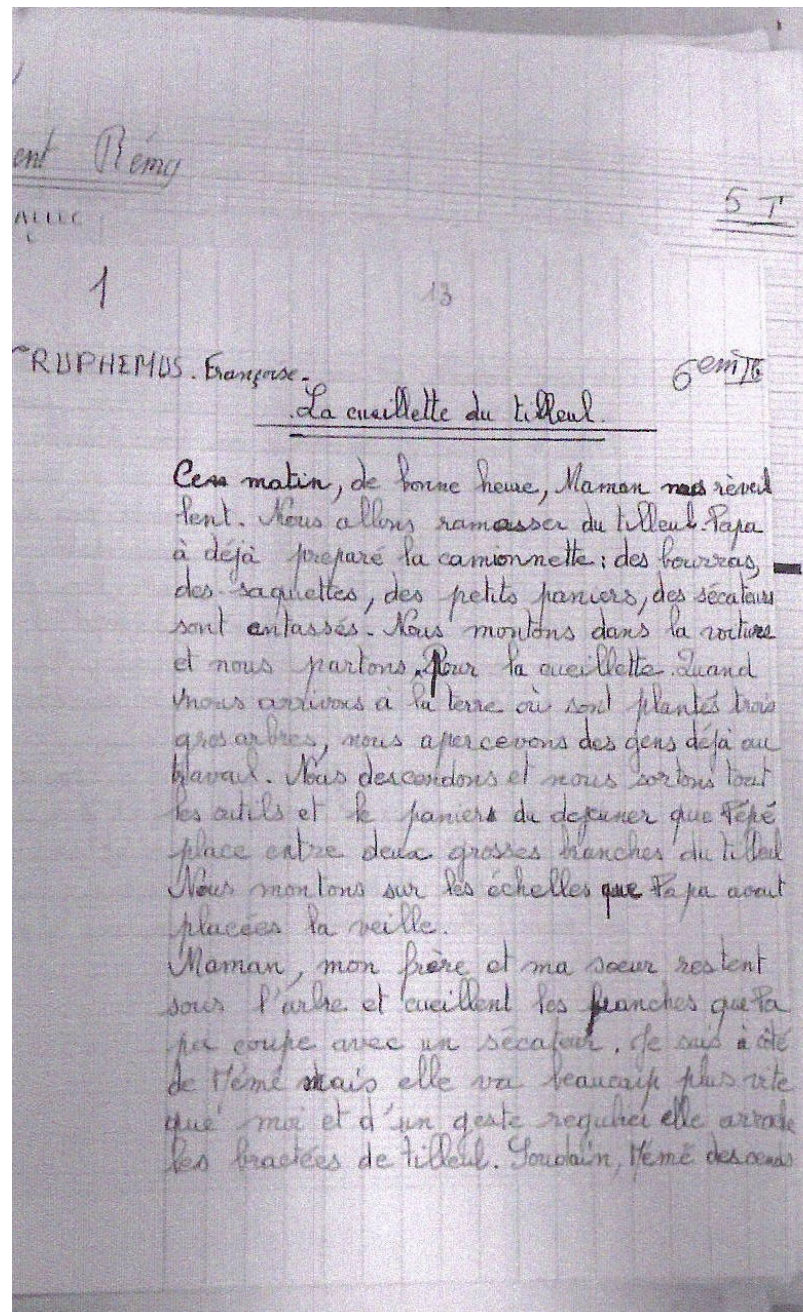 ent Rémy
5 T
1
13
TRUPHEMUS. Françoise.
6em IG
La cueillette du tilleul.
Ces matin, de bonne heure, Maman nous réveil
lent. Nous allons ramasser du tilleul. Papa
à déjà préparé la camionnette : des bourras,
des saquettes, des petits paniers, des sécateurs
sont entassés. Nous montons dans la voiture
et nous partons. Pour la cueillette. Quand
nous arrivons à la terre où sont plantés trois
gros arbres, nous apercevons des gens déjà au
travail. Nous descendons et nous sortons tout
les outils et le paniers du dejeuner que Pépé
place entre deux grosses branches du tilleul
Nous montons sur les échelles que Papa avait
placées la veille.
Maman, mon frère et ma soeur restent
sous l'arbre et cueillent les branches que Pa
pa coupe avec un sécateur. Je suis à côté
de Mémé mais elle va beaucoup plus vite
que moi et d'un geste regulier elle arrache
les bractées de tilleul. Soudain, Mémé descends